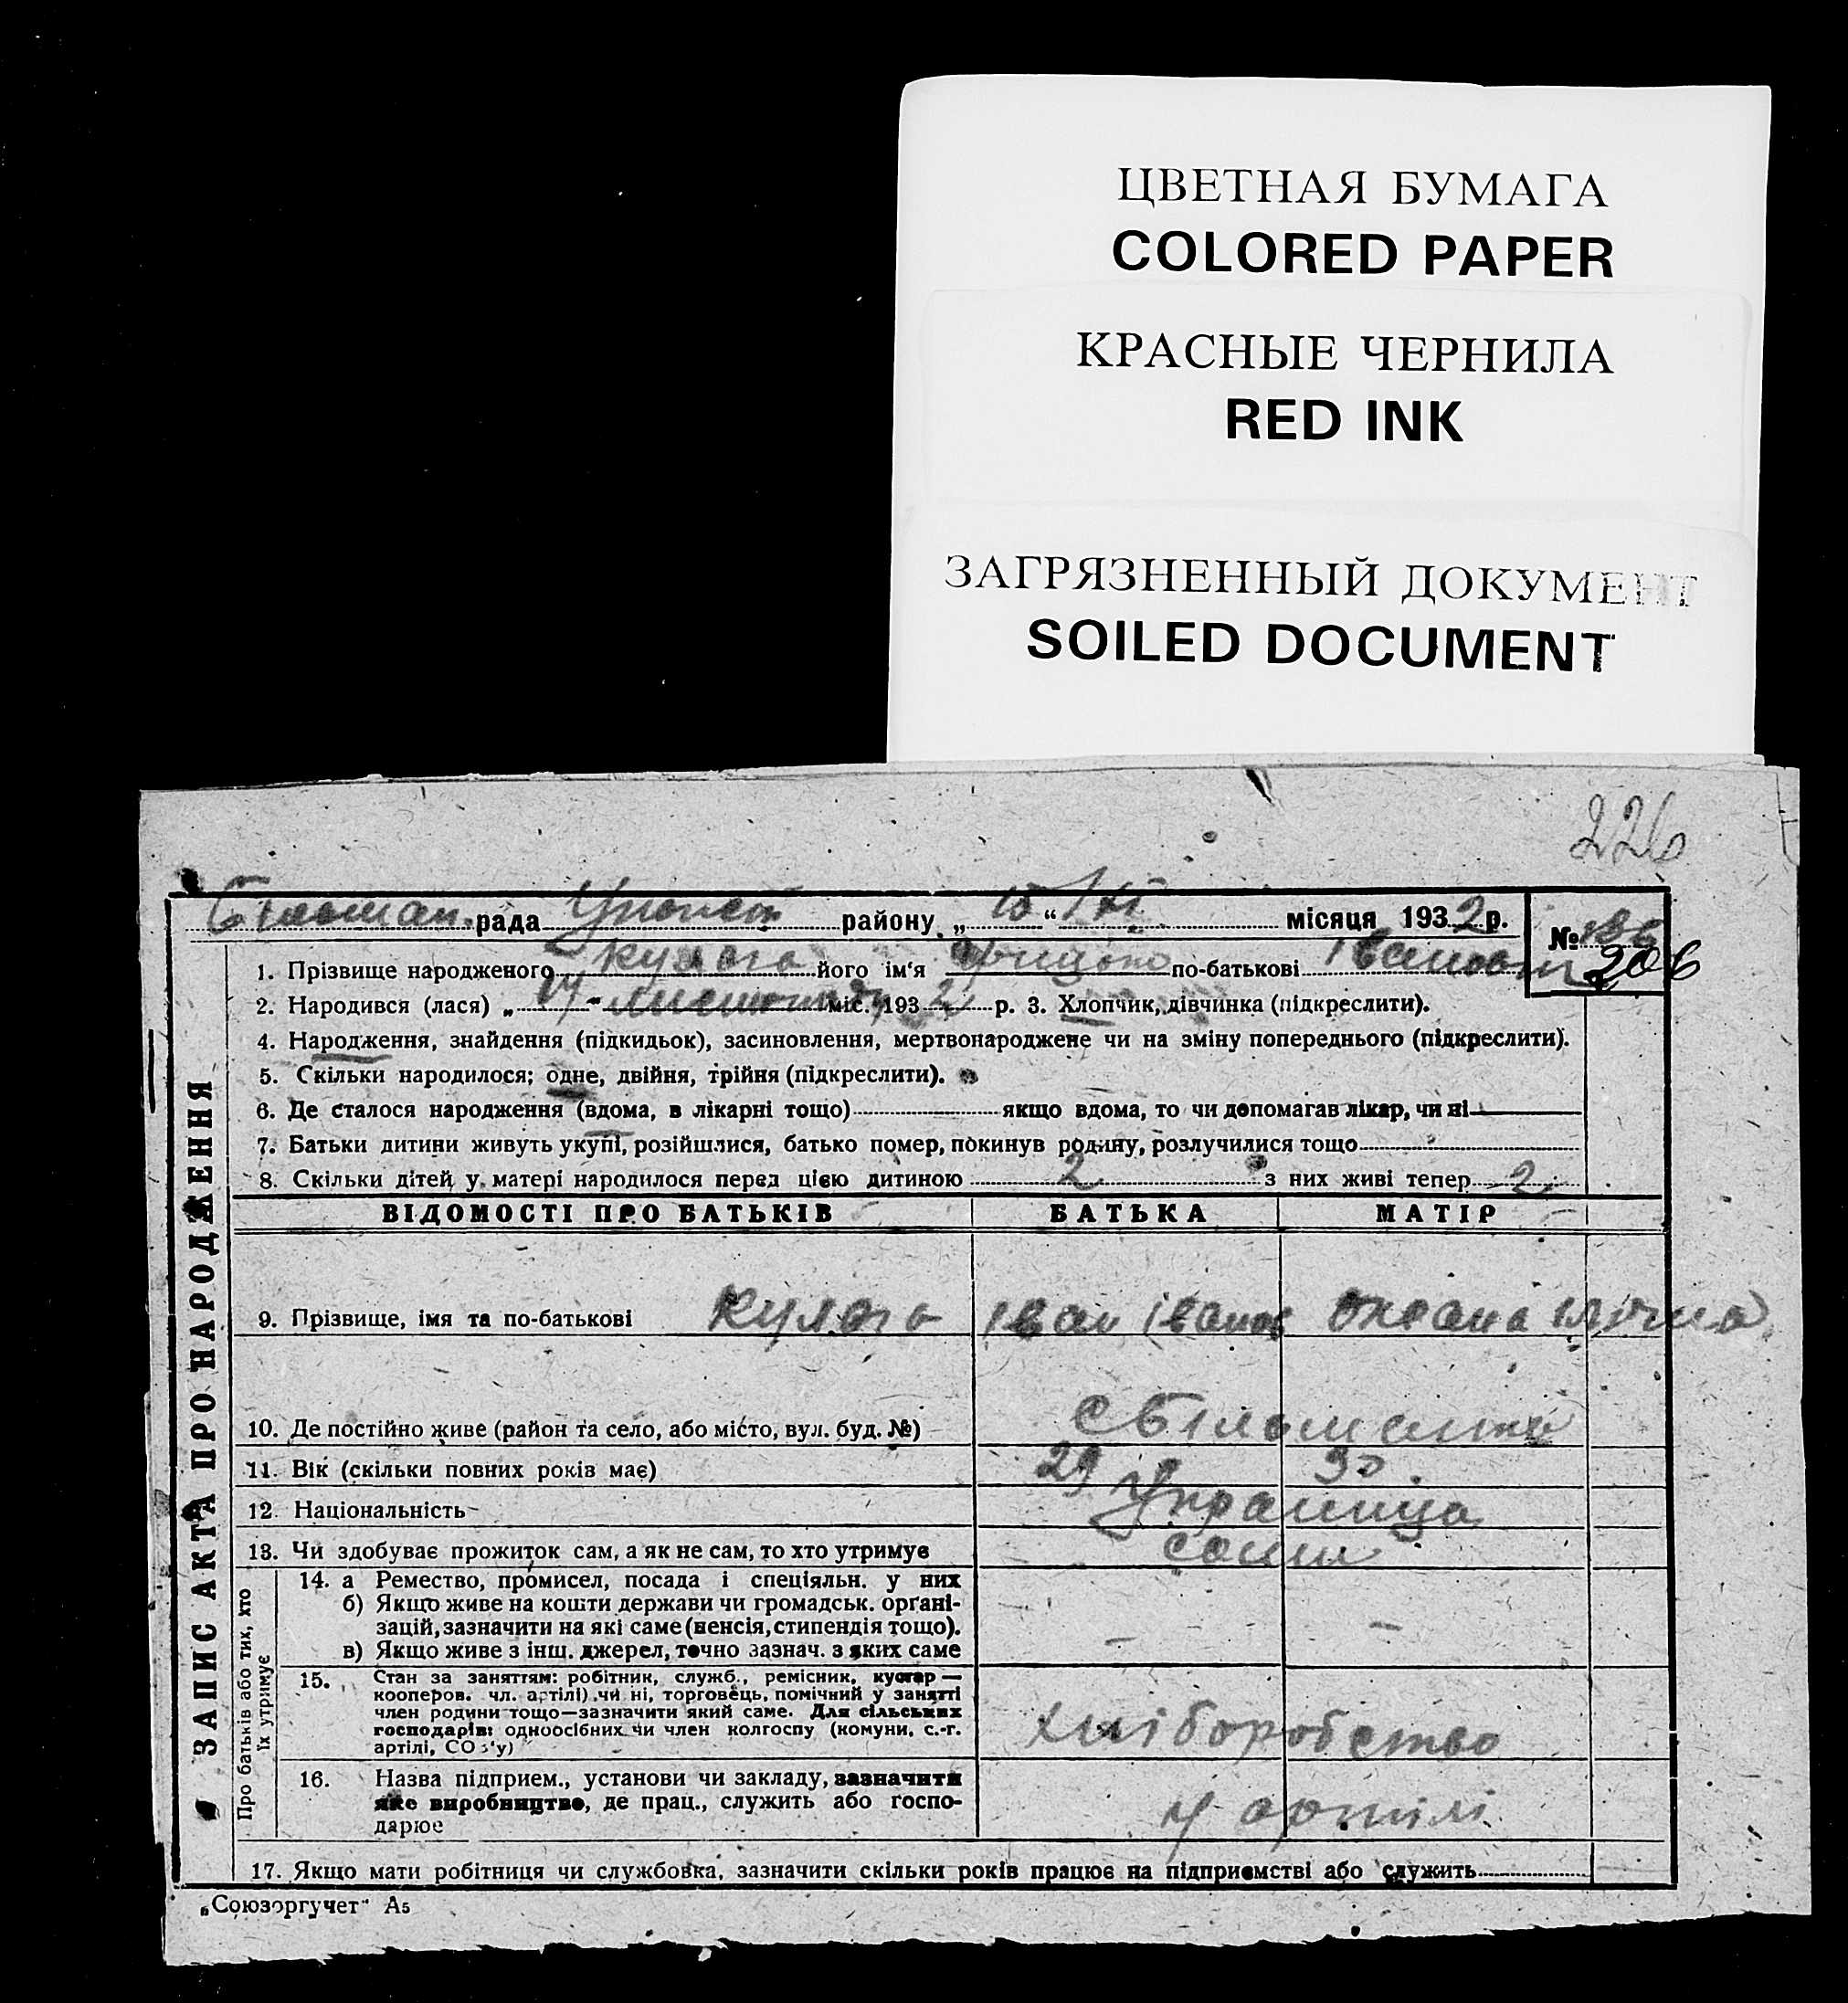 ЦВЕТНАЯ БУМАГА
COLORED PAPER
КРАСНЫЕ ЧЕРНИЛА
RED INK
ЗАГРЯЗНЕННЫЙ ДОКУМЕНТ
SOILED DOCUMENT
226
рада району „15“ XI місяця 1932 р.
№ 206
1. Прізвище народженого Кулага його ім‘я Грицько по-батькові
2. Народився (лася) „17“ листопаду міс. 1932 р. 3. Хлопчик, дівчинка (підкреслити).
4. Народження, знайдення (підкидьок), засиновлення, мертвонароджене чи на зміну попереднього (підкреслити).
5. Скільки народилося; одне, двійня, трійня (підкреслити).
6. Де сталося народження (вдома, в лікарні тощо) якщо вдома, то чи допомагав лікар, чи ні
7. Батьки дитини живуть укупі, розійшлися, батько помер, покинув родину, розлучилися тощо
8. Скільки дітей у матері народилося перед цією дитиною 2 з них живі тепер 2
ЗАПИС АКТА ПРО НАРОДЖЕННЯ
ВІДОМОСТІ ПРО БАТЬКІВ БАТЬКА МАТІР
9. Прізвище, імя та по-батькові Кулага Іван Іванов Оксана
10. Де постійно живе (район та село, або місто, вул. буд. №)
11. Вік (скільки повних років має) 29 30
12. Національність Українці
13. Чи здобуває прожиток сам, а як не сам, то хто утримує сами
Про батьків або тих, хто їх утримує
14. а Ремество, промисел, посада і спеціяльн. у них
б) Якщо живе на кошти держави чи громадськ. органі-
зацій, зазначити на які саме (пенсія, стипендія тощо).
в) Якщо живе з інш. джерел, точно зазнач. з яких саме
15. Стан за заняттям: робітник, служб., ремісник, кустар —
кооперов. чл. артілі) чи ні, торговець, помічний у занятті
член родини тощо—зазначити який саме. Для сільських
господарів: одноосібних чи член колгоспу (комуни, с.-г.
артілі, СОЗ‘у)
хліборобство
16. Назва підприєм., установи чи закладу, зазначити
яке виробництво, де прац., служить або госпо-
дарює
у артілі
17. Якщо мати робітниця чи службовка, зазначити скільки років працює на підприємстві або служить
„Союзоргучет“ А5